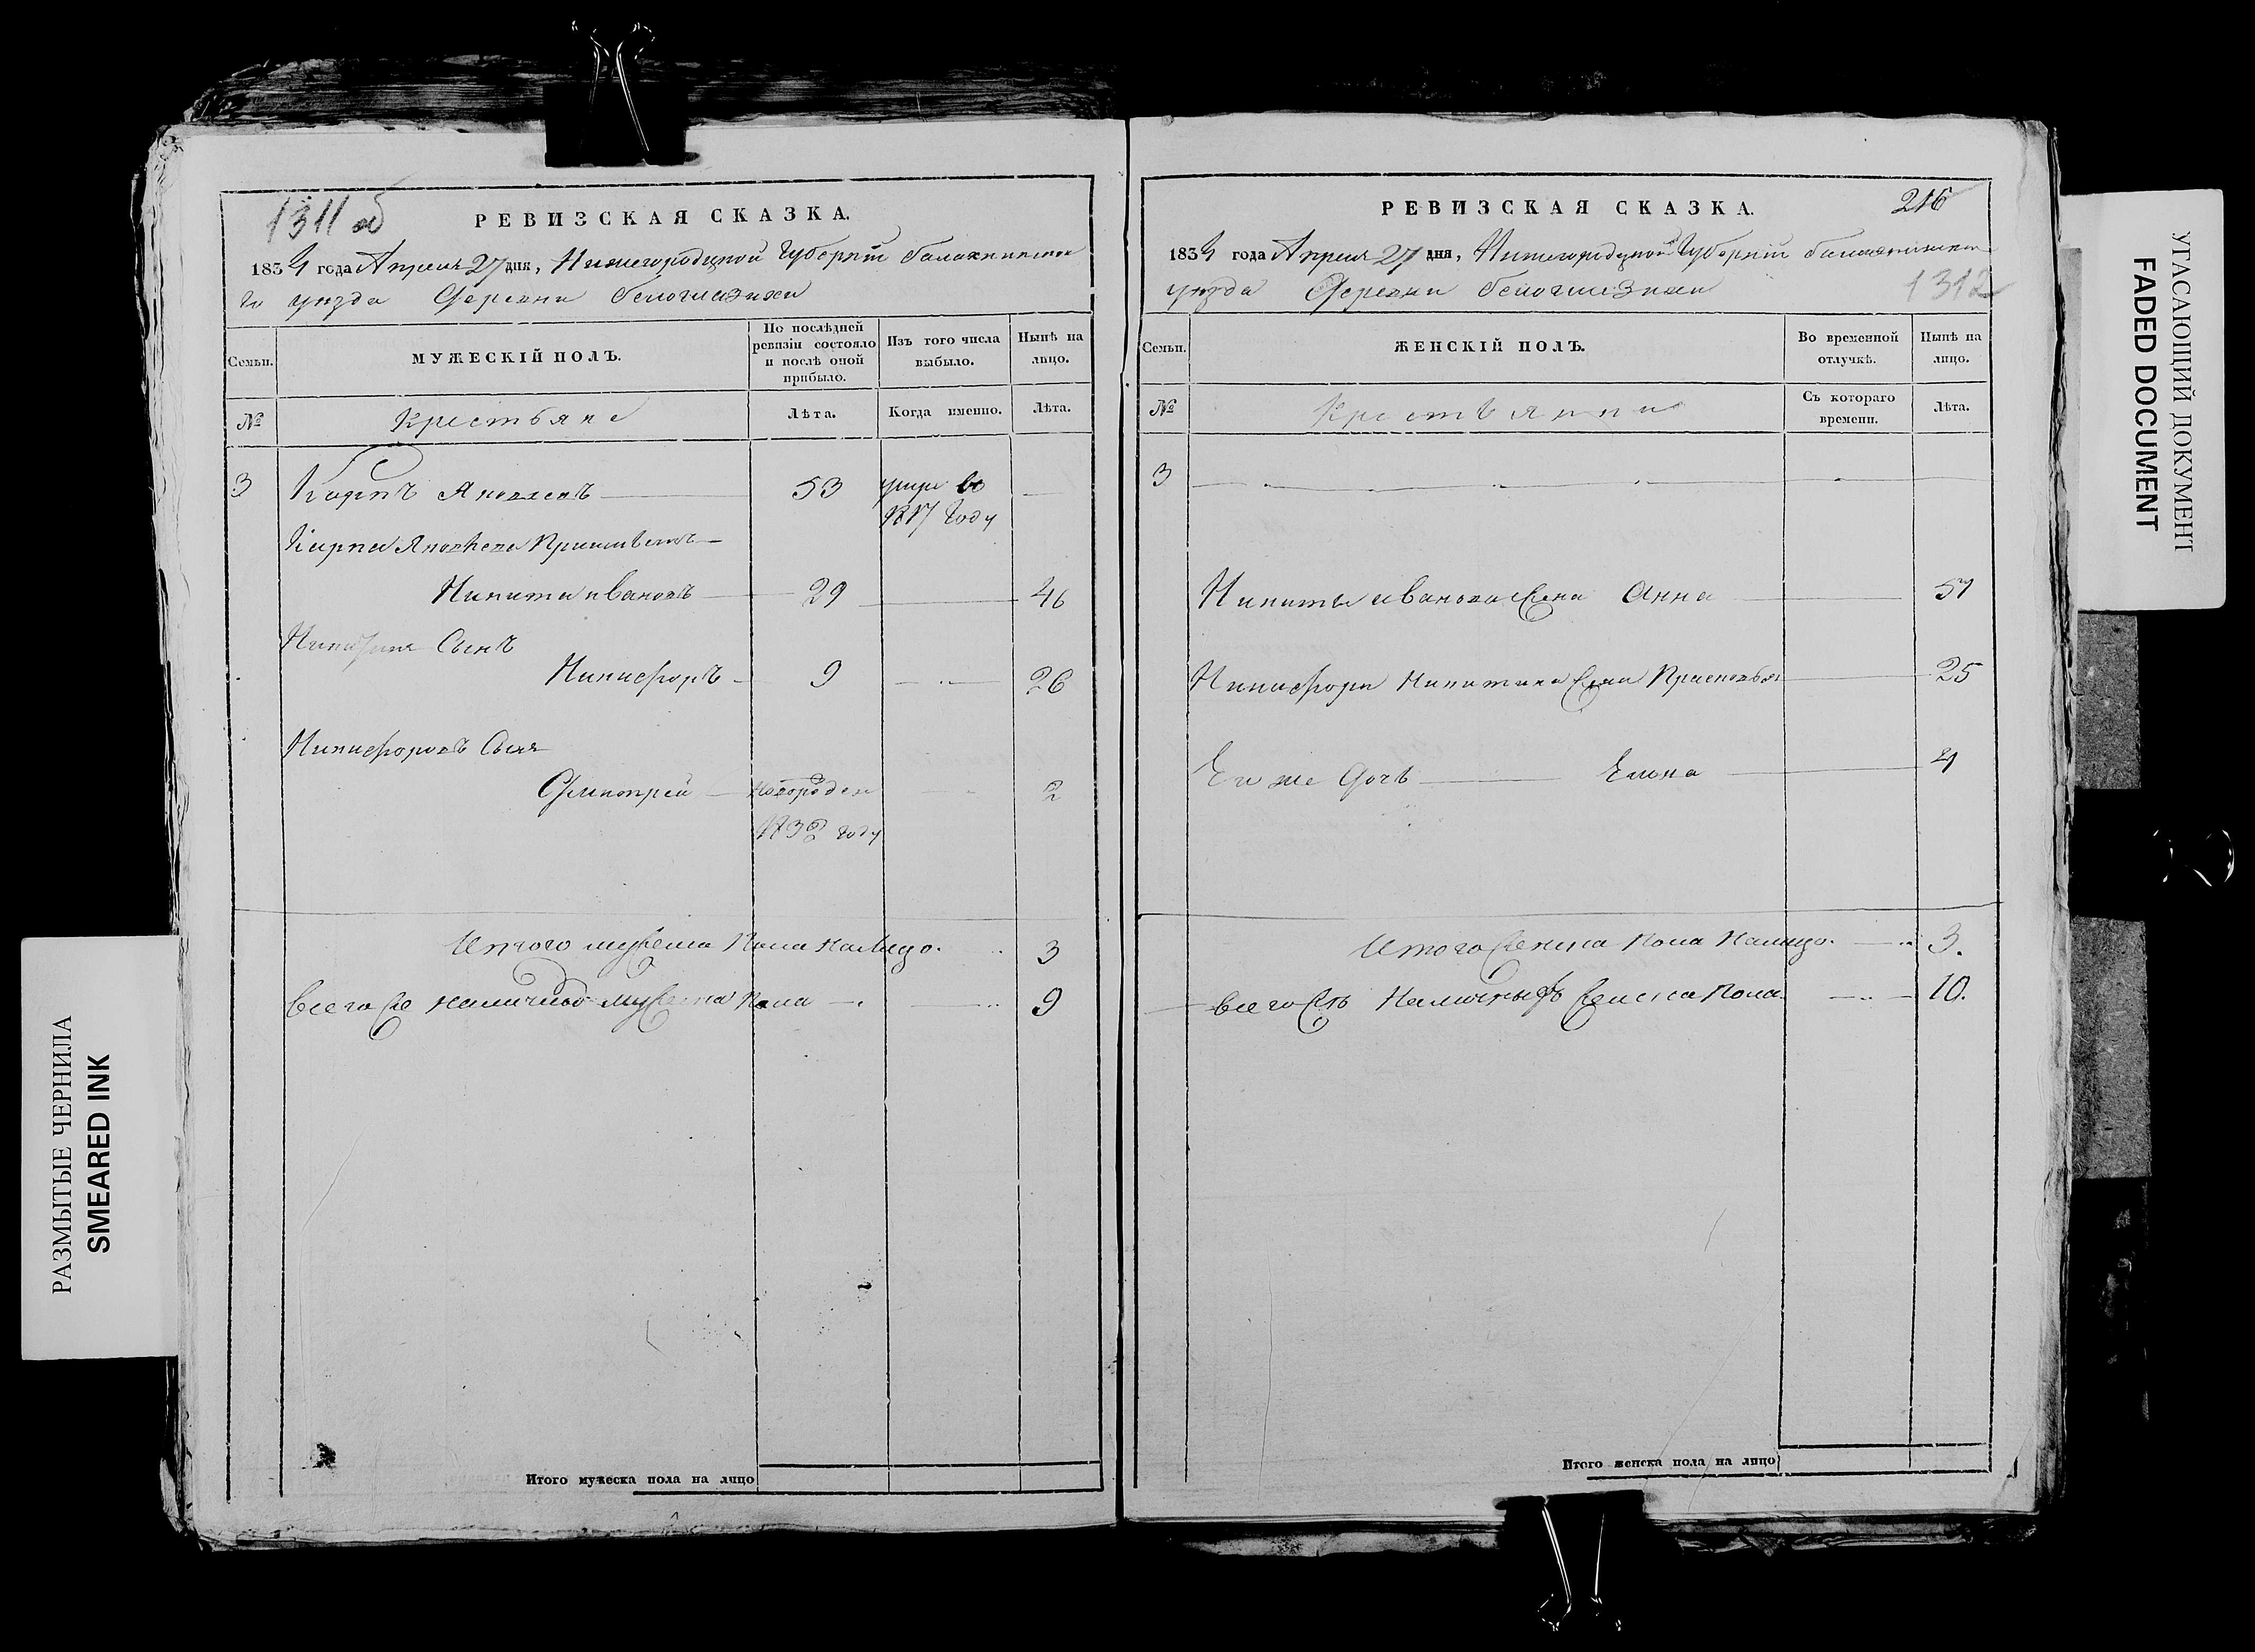 1311 об
РЕВИЗСКАЯ СКАЗКА.
1834 года Апреля 27 дня, Нижегородцкой Губернiи балахнинска
го уезда Деревни белоглазихи
Семьи.
МУЖЕСКІЙ ПОЛЪ.
По послѣдней ревизіи состояло и послѣ оной прибыло.
Изъ того числа выбыло.
Нынѣ на лицо.
№
Крестьяне
Лѣта.
Когда именно.
Лѣта.
3 Карпъ Яковлевъ 53 умре во
1817 году
Карпа Яковлева
Никита ивановъ 29 46
Никиты Сынъ
Никифоръ 9 26
Никифоровъ Сынъ
Дмитрей новорожден 2
1832 году
Итого мужеска Пола на Лицо. 3
всего же наличнаго мужеска Пола 9
Итого мужеска пола на лицо
216
РЕВИЗСКАЯ СКАЗКА.
1834 года Апреля 27 дня, Нижегородцкой Губернiи балахнинскаго
уезда Деревни белоглазихи
1312
Семьи.
ЖЕНСКІЙ ПОЛЪ.
Во временной отлучкѣ.
Нынѣ на лицо.
№
Крестьянки
Съ котораго времени.
Лѣта.
3
Никиты иванова жена Анна 51
Никифора Никитина жена Прасковья 25
Ево же Дочь Елена 4
Итого женска Пола Налицо. 3.
всего же Наличныхъ женска Пола. 10.
Итого женска пола на лицо
РАЗМЫТЫЕ ЧЕРНИЛА
SMEARED INK
УГАСАЮЩИЙ ДОКУМЕНТ
FADED DOCUMENT